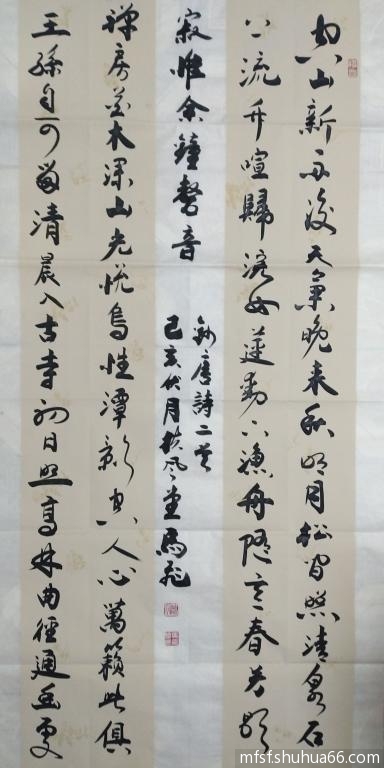 空山新雨後天氣晚来秋明月松間照清泉石
上流竹喧歸浣女蓮動下漁舟隨意春芳歇
王孫自可留清晨入古寺初日照高林曲徑通幽處
禅房花木深山光悦鳥性潭影空人心萬籟此俱
寂惟余鐘磬音
唐詩二首
己亥伏月風堂馬飛
mfsf.shuhua66.com